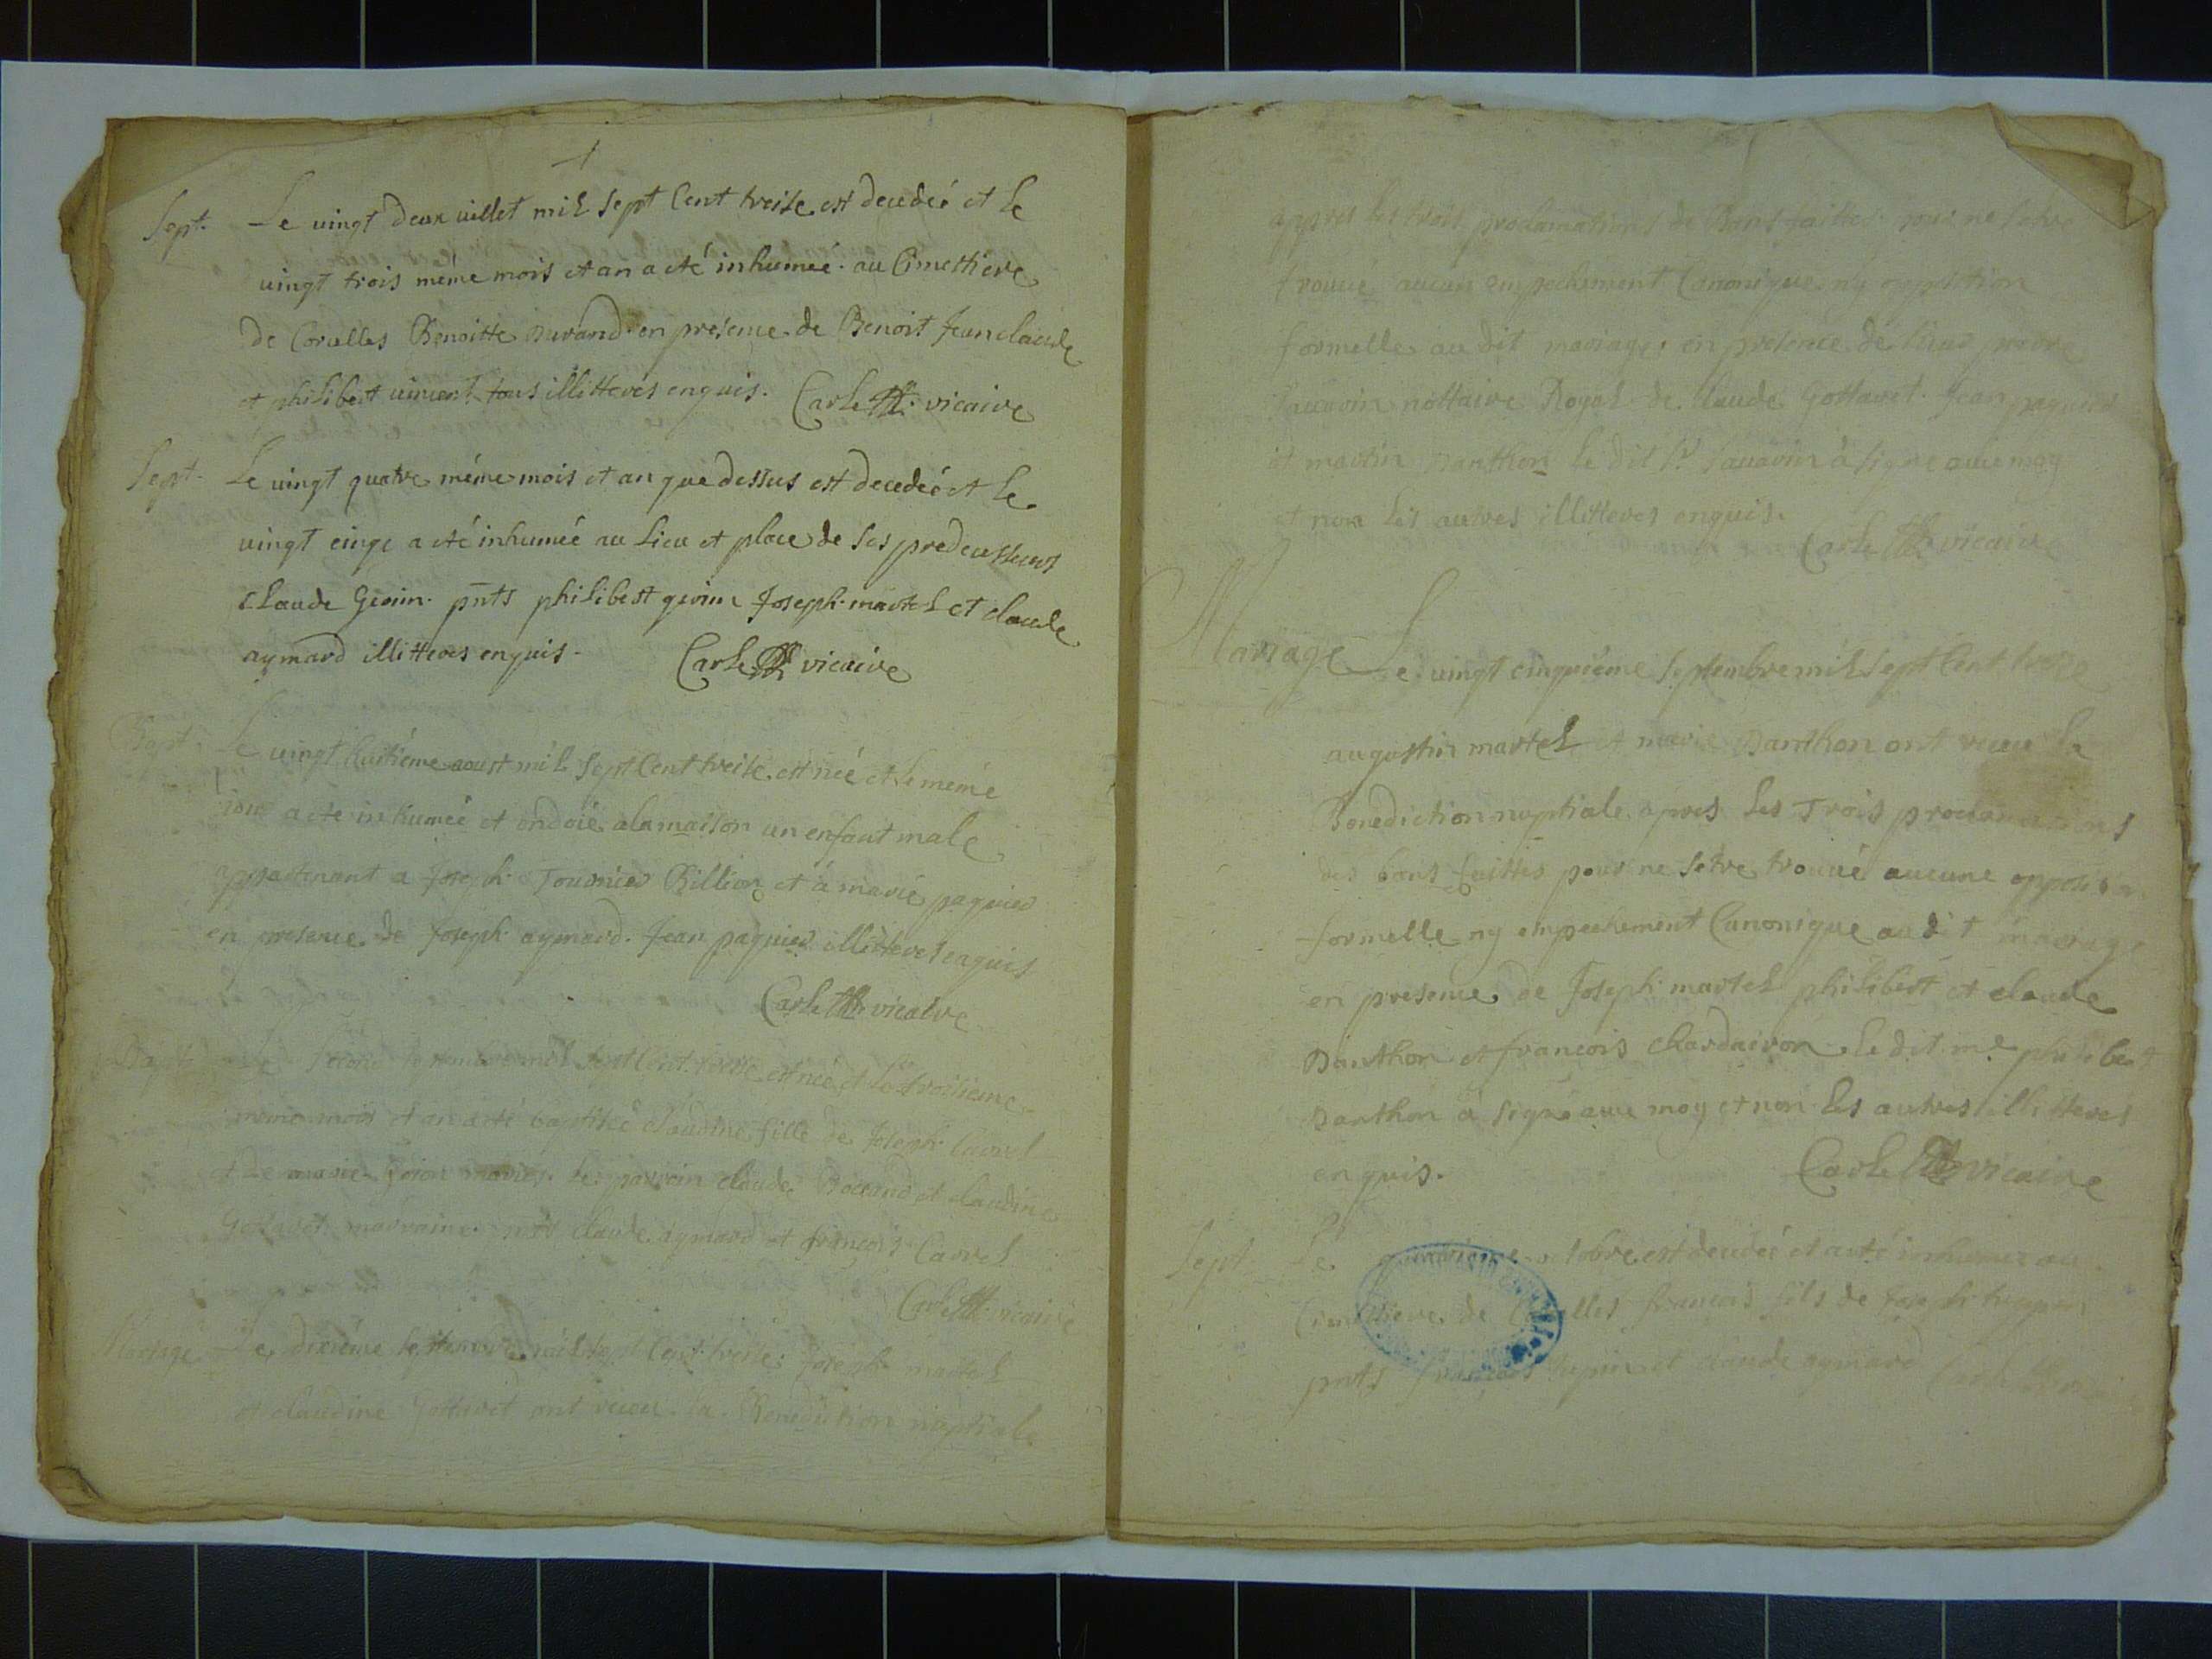 Sept. Le vingt deux iuillet mil sept Cent treise est decedeé et le
vingt trois méme mois et an a eté inhumeé au Cimettiere
de Coruelles Benoitte Durand en presence de Benoit Jeanclaude
et philibert vincent tous illitterés enquis. Carle vicaire
Sept. Le vingt quatre méme mois et an que dessus est decedeé et le
vingt cinqe a eté inhumeé au Lieu et place de ses predecesseurs
Claude Geoin pnts philibert geoin Joseph martel et claude
aymard illitteres enquis. Carle vicaire
Bapt. Le vingt huitiéme aoust mil sept Cent treise est neé et le méme
iour a eté inhumeé et ondoié a la maison un enfant male
appartenant a Joseph Tournier Billion et á marie paquier
en presence de Joseph aymard. Jean paquier illitteres enquis
Carle vicaire
Bapt. Le second septembre mil sept Cent treise est neé et le troisieme
méme mois et an a eté baptiseé claudine fille de Joseph
et de marie mariés. le parrain claude et claudine
Gottaret marraine. pnts claude aymard et françois
Carle vicaire
Mariage Le dixiéme septembre mil sept Cent treise Joseph martel
et claudine Gottaret ont receu la Benediction nuptiale
apres les trois proclamations de Bans faittes pour ne setre
trouué aucun empechement Canonique ny opposition
formelle au dit mariage en presence de sieur
Sauarin nottaire Royal de claude Gottaret. Jean paquier
et martin Danthon le dit Sr. Sauarin à signe auec moy
et non les autres illitteres enquis.
Carle vicaire
Mariage Le vingt cinquiéme septembre mil sept Cent treise
augustin martel et marie Danthon ont receu la
Benediction nuptiale apres les Trois proclamations
des bans faittes pour ne setre trouué aucune opposition
formelle ny empechement Canonique au dit mariage
en presence de Joseph martel philibert et claude
Danthon et françois chardairon le dit me. philibert
Danthon à signé auec moy et non les autres illitteres
enquis. Carle vicaire
Sept. Le octobre est decedeé et a eté inhumeé au
Cimettiere de Coruelles françois fils de Joseph
pnts françois et claude aymard Carle